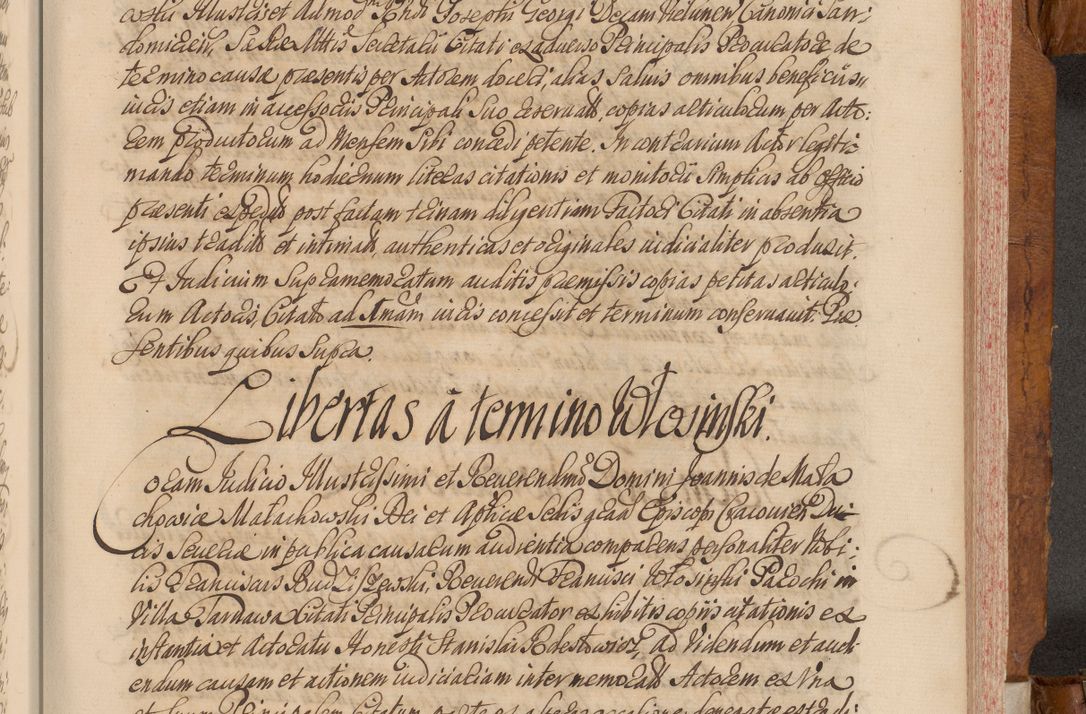 owski Illustris et Admod Rndi Josephi Georgi Decani Helunen Canonici San:
domirien, Sa Rae Mttis Secretarii Citati ex adverso Principalis Procuratore de
termino causæ præsentis per Actorem doceri, alias salvis omnibus beneficiis
iuris etiam in accessoriis Principali suo reservatt, copias articulorum per Acto:
rem productorum ad Mensem sibi concedi petente. In contrarium Actor legiti:
mando terminum hodiernum literas citationis et monitorii simplicis ab Officio
præsenti exped post factam trinam diligentiam Factori Citati in absentia
ipsius tradit et intimatt, authenticas et originales iudicialiter produxit.
Et Iudicium Supramemoratum auditis præmissis copias petitas articulo:
rum Actoris, Citato ad Annam iuris concessit et terminum conservavit. Præ
sentibus quibus supra.
Libertas à termino Włosinski.
Coram Iudicio Illustrissimi et Reverendmi Domini Joannis de Mała
chowice Małachowski Dei et Aplicæ Sedis gratia Episcopi Cracovien Du
cis Severiæ in publica causarum audientia comparens personaliter Nobi:
lis Franciscus Budziszewski, Reverendi Francisci Włosinski Parochi in
Villa Tarnawa Citati Principalis Procurator exhibitis copiis citationis ex
instantia et Actoratu Honesti Stanislai ad Videndum et audi
endum causam et actionem iudiciariam inter memoratt Actorem ex Una